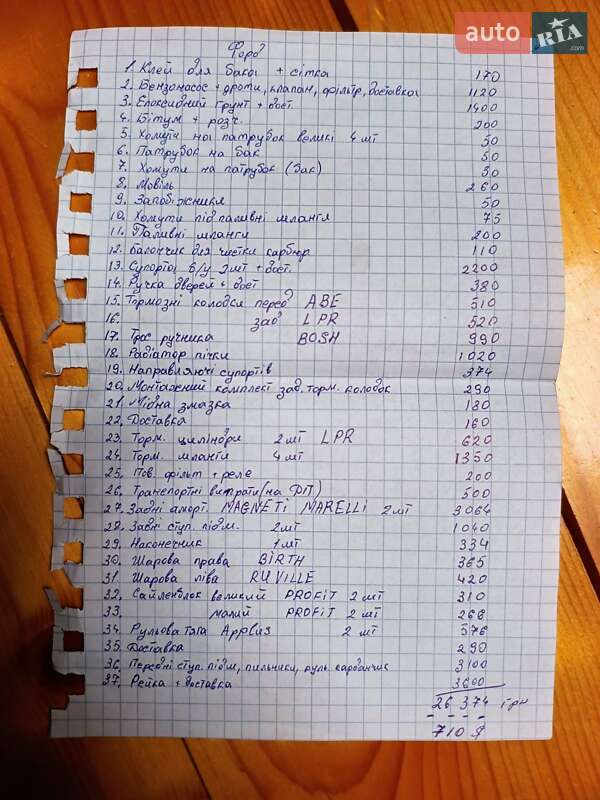 auto RIA.com
Форд
1. Клей для бака + сітка 170
2. Бензонасос + дроти, клапан, фільтр, доставка 1120
3. Епоксидний грунт + дост. 1400
4. Бітум + розч. 200
5. Хомути на патрубок великі 4 шт 50
6. Патрубок на бак 50
7. Хомути на патрубок (бак) 30
8. Мовіль 260
9. Запобіжники 50
10. Хомути під паливні шланги 75
11. Паливні шланги 200
12. Балончик для чистки карбюр 110
13. Супорта б/у 2шт + дост. 2200
14. Ручка дверей + дост 380
15. Тормозні колодки перед ABE 510
16. зад LPR 520
17. Трос ручника BOSH 990
18. Радіатор пічки 1020
19. Направляючі супортів 374
20. Монтажний комплект зад. торм. колодок 290
21. Мідна змазка 180
22. Доставка 160
23. Торм. циліндри 2 шт LPR 620
24. Торм. шланги 4 шт 1350
25. Пов. фільт + реле 200
26. Транспортні витрати (на ДП) 500
27. Задні аморт. MAGNETI MARELLI 2 шт 3064
28. Задні ступ. підш. 2шт 1040
29. Наконечник 1шт 334
30. Шарова права BIRTH 365
31. Шарова ліва RUVILLE 420
32. Сайленблок великий PROFIT 2 шт 310
33. малий PROFIT 2 шт 266
34. Рульова тяга Applus 2 шт 576
35. Доставка 290
36. Передні ступ. підш, пильники, руль. карданчик 3100
37. Рейка + доставка 3600
26 374 грн
710 $